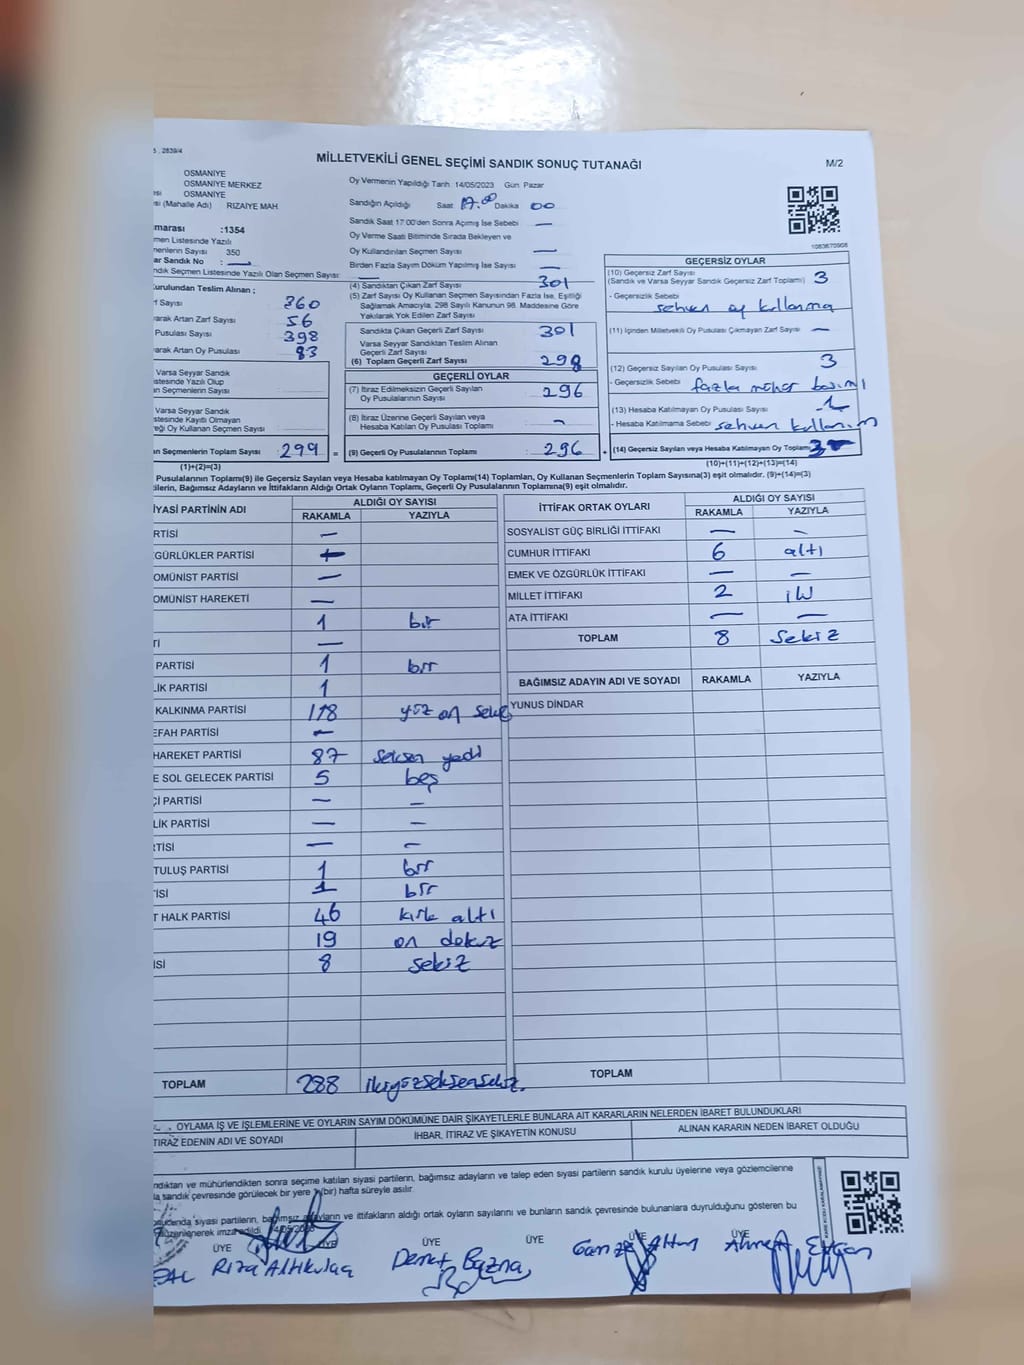 2839/4
MİLLETVEKİLİ GENEL SEÇİMİ SANDIK SONUÇ TUTANAĞI
M/2
OSMANİYE
OSMANİYE MERKEZ
OSMANİYE
si (Mahalle Adı) RIZAİYE MAH
Oy Vermenin Yapıldığı Tarih 14/05/2023 Gün Pazar
Sandığın Açıldığı Saat 17.00 Dakika 00
Sandık Saat 17:00'den Sonra Açılmış İse Sebebi —
Oy Verme Saati Bitiminde Sırada Bekleyen ve
Oy Kullandırılan Seçmen Sayısı —
Birden Fazla Sayım Döküm Yapılmış İse Sayısı —
marası :1354
men Listesinde Yazılı
menlerin Sayısı 350
ar Sandık No : —
ndık Seçmen Listesinde Yazılı Olan Seçmen Sayısı: —
1083670908
urulundan Teslim Alınan ;
rf Sayısı 360
arak Artan Zarf Sayısı 56
Pusulası Sayısı 398
arak Artan Oy Pusulası 83
Varsa Seyyar Sandık
stesinde Yazılı Olup
n Seçmenlerin Sayısı
Varsa Seyyar Sandık
stesinde Kayıtlı Olmayan
eği Oy Kullanan Seçmen Sayısı
n Seçmenlerin Toplam Sayısı 299
(1)+(2)=(3)
(4) Sandıktan Çıkan Zarf Sayısı 301
(5) Zarf Sayısı Oy Kullanan Seçmen Sayısından Fazla İse, Eşitliği
Sağlamak Amacıyla, 298 Sayılı Kanunun 98. Maddesine Göre
Yakılarak Yok Edilen Zarf Sayısı
Sandıkta Çıkan Geçerli Zarf Sayısı 301
Varsa Seyyar Sandıktan Teslim Alınan
Geçerli Zarf Sayısı
(6) Toplam Geçerli Zarf Sayısı 298
GEÇERLİ OYLAR
(7) İtiraz Edilmeksizin Geçerli Sayılan
Oy Pusulalarının Sayısı 296
(8) İtiraz Üzerine Geçerli Sayılan veya
Hesaba Katılan Oy Pusulası Toplamı —
= (9) Geçerli Oy Pusulalarının Toplamı 296 +
GEÇERSİZ OYLAR
(10) Geçersiz Zarf Sayısı
(Sandık ve Varsa Seyyar Sandık Geçersiz Zarf Toplamı) 3
- Geçersizlik Sebebi
sehven oy kullanma
(11) İçinden Milletvekili Oy Pusulası Çıkmayan Zarf Sayısı —
(12) Geçersiz Sayılan Oy Pusulası Sayısı 3
- Geçersizlik Sebebi fazla mühür basımı
(13) Hesaba Katılmayan Oy Pusulası Sayısı
- Hesaba Katılmama Sebebi sehven kullanım
(14) Geçersiz Sayılan veya Hesaba Katılmayan Oy Toplamı 3
(10)+(11)+(12)+(13)=(14)
Pusulalarının Toplamı(9) ile Geçersiz Sayılan veya Hesaba katılmayan Oy Toplamı(14) Toplamları, Oy Kullanan Seçmenlerin Toplam Sayısına(3) eşit olmalıdır. (9)+(14)=(3)
tilerin, Bağımsız Adayların ve İttifakların Aldığı Ortak Oyların Toplamı, Geçerli Oy Pusulalarının Toplamına(9) eşit olmalıdır.
İYASİ PARTİNİN ADI ALDIĞI OY SAYISI
RAKAMLA YAZIYLA
RTİSİ —
GÜRLÜKLER PARTİSİ
OMÜNİST PARTİSİ —
OMÜNİST HAREKETİ —
1 bir
Tİ —
PARTİSİ 1 bir
LİK PARTİSİ 1
KALKINMA PARTİSİ 118 yüz on sekiz
EFAH PARTİSİ —
HAREKET PARTİSİ 87 seksen yedi
E SOL GELECEK PARTİSİ 5 beş
Çİ PARTİSİ — —
LİK PARTİSİ — —
RTİSİ — —
TULUŞ PARTİSİ 1 bir
İSİ 1 bir
T HALK PARTİSİ 46 kırk altı
19 on dokuz
İSİ 8 sekiz
TOPLAM 288 ikiyüzseksensekiz.
İTTİFAK ORTAK OYLARI ALDIĞI OY SAYISI
RAKAMLA YAZIYLA
SOSYALİST GÜÇ BİRLİĞİ İTTİFAKI — —
CUMHUR İTTİFAKI 6 altı
EMEK VE ÖZGÜRLÜK İTTİFAKI — —
MİLLET İTTİFAKI 2 iki
ATA İTTİFAKI — —
TOPLAM 8 sekiz
BAĞIMSIZ ADAYIN ADI VE SOYADI RAKAMLA YAZIYLA
YUNUS DİNDAR
TOPLAM
OYLAMA İŞ VE İŞLEMLERİNE VE OYLARIN SAYIM DÖKÜMÜNE DAİR ŞİKAYETLERLE BUNLARA AİT KARARLARIN NELERDEN İBARET BULUNDUKLARI
TİRAZ EDENİN ADI VE SOYADI İHBAR, İTİRAZ VE ŞİKAYETİN KONUSU ALINAN KARARIN NEDEN İBARET OLDUĞU
ndıktan ve mühürlendikten sonra seçime katılan siyasi partilerin, bağımsız adayların ve talep eden siyasi partilerin sandık kurulu üyelerine veya gözlemcilerine
la sandık çevresinde görülecek bir yere 1(bir) hafta süreyle asılır.
siyasi partilerin, bağımsız adayların ve ittifakların aldığı ortak oyların sayılarını ve bunların sandık çevresinde bulunanlara duyurulduğunu gösteren bu
düzenlenerek imza edildi.
ÜYE ÜYE ÜYE ÜYE ÜYE ÜYE
Rıza Altıkulaç
Ahmet